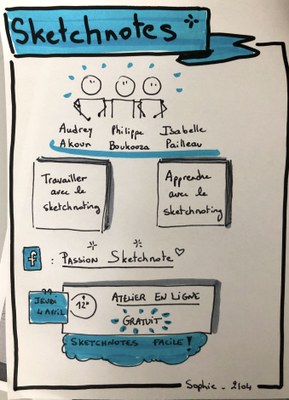 Sketchnotes
Audrey Philippe Isabelle
Akoun Boukobza Pailleau
Travailler
avec le
sketchnoting
Apprendre
avec le
sketchnoting
f : Passion Sketchnote
Jeudi
4 avril
12h
Atelier en ligne
Gratuit
Sketchnotes facile !
Sophie - 2/04